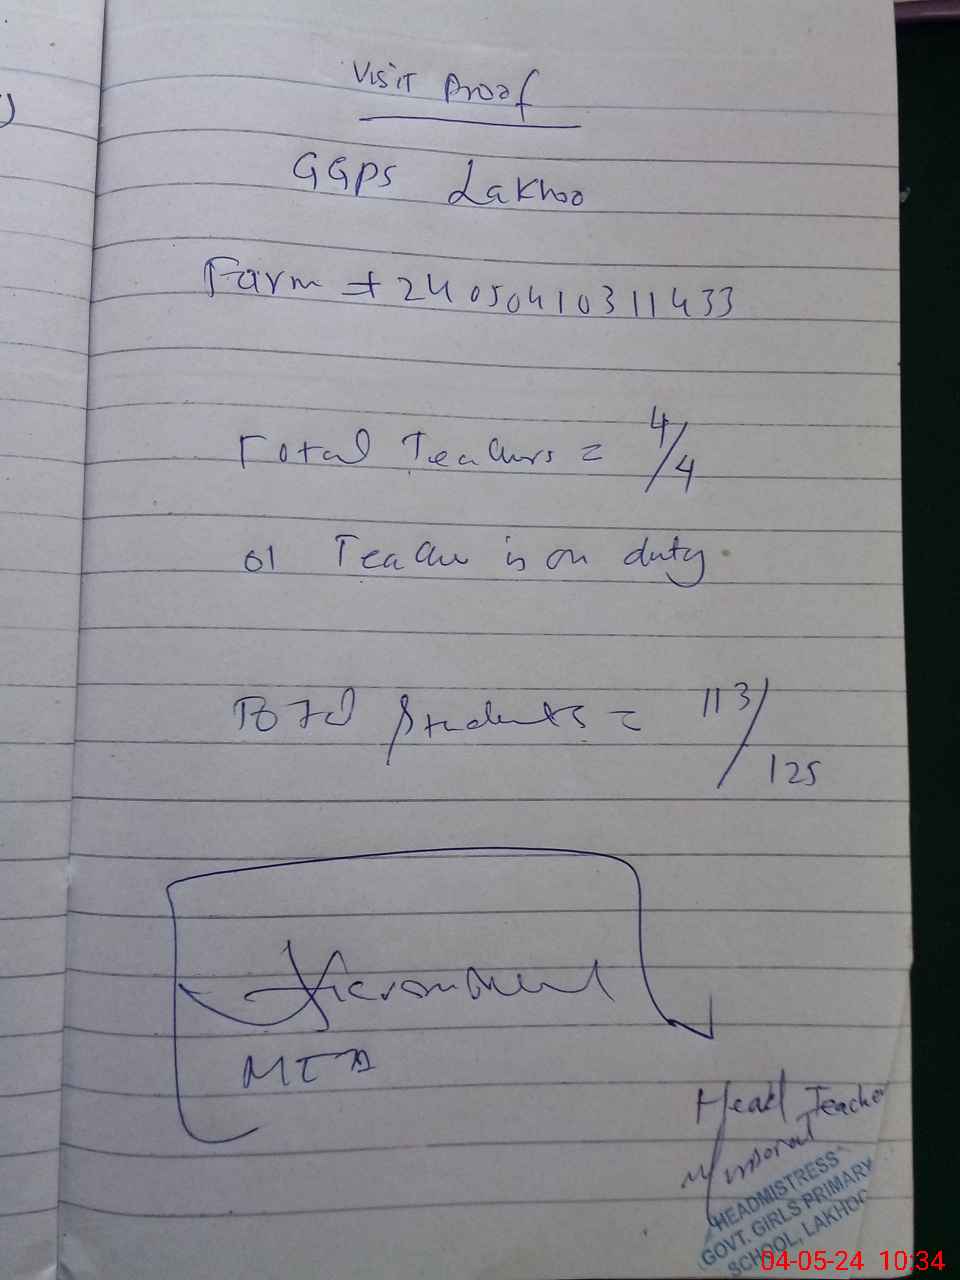 Visit Proof
GGPS Lakhoo
Farm # 24050410311433
Total Teachers = 4/4
01 Teacher is on duty
Total Students = 113/125
MEA
Head Teacher
HEADMISTRESS
GOVT. GIRLS PRIMARY
SCHOOL, LAKHOO
04-05-24 10:34